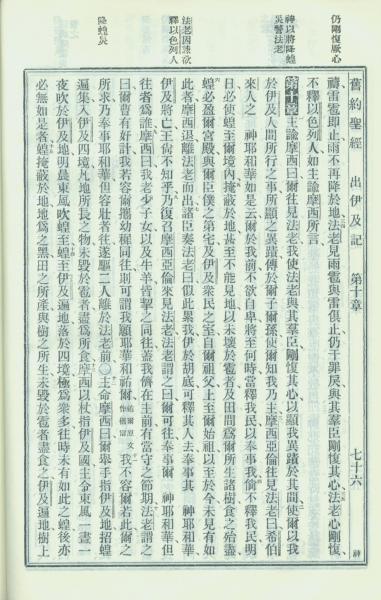 舊約聖經 出伊及記 第十章 七十六 神
仍剛愎厥心
神以將降蝗
災警法老
法老因臣欲
釋以色列人
降蝗災
禱雷雹即止雨不再降於地法老見雨雹與雷俱止仍干罪戾與其羣臣剛愎其心法老心剛愎
不釋以色列人如主諭摩西所言
第十章 主諭摩西曰往見法老我使法老與其羣臣剛愎其心以顯我異蹟於其間使爾以我
於伊及人間所行之事所顯之異蹟傳於爾子爾孫使爾知我乃主摩西亞倫往見法老曰希伯
來人之 神耶和華如是云爾於我前不欲自卑將至何時當釋我民以奉事我倘不釋我民明
日必使蝗至爾境內掩蔽於地甚至不能見地以未壞於雹者及田間爲爾所生諸樹食之殆盡
蝗必盈爾宮殿與爾臣僕之第宅及伊及衆民之室自爾祖父上至爾始祖以至於今未見有如
此者摩西退離法老而出諸臣奏法老曰似此累我伊於胡底可釋其人去奉事其 神耶和華
伊及將亡王尚不知乎乃復召摩西亞倫來見法老法老謂之曰爾可往奉事爾 神耶和華但
往者爲誰摩西曰我老少子女以及牛羊皆挈之同往蓋我儕在主前有當守之節期法老謂之
曰爾曹有好計我若容爾攜幼穉同往則可謂我願耶和華祐爾祐爾原文作偕爾我不容爾若此爾之
所求乃奉事耶和華但容壯者往遂驅二人離於法老前〇主命摩西曰爾舉手指伊及地招蝗
遍集入伊及四境凡地所長之物未毀於雹者盡爲所食摩西以杖指伊及國主令東風一晝一
夜吹於伊及地明晨東風吹蝗至蝗至伊及遍地落於四境極爲衆多往時未有如此之蝗後亦
必無如是者蝗掩蔽於地地爲之黑田之所產與樹之所生未毀於雹者盡食之伊及遍地樹上